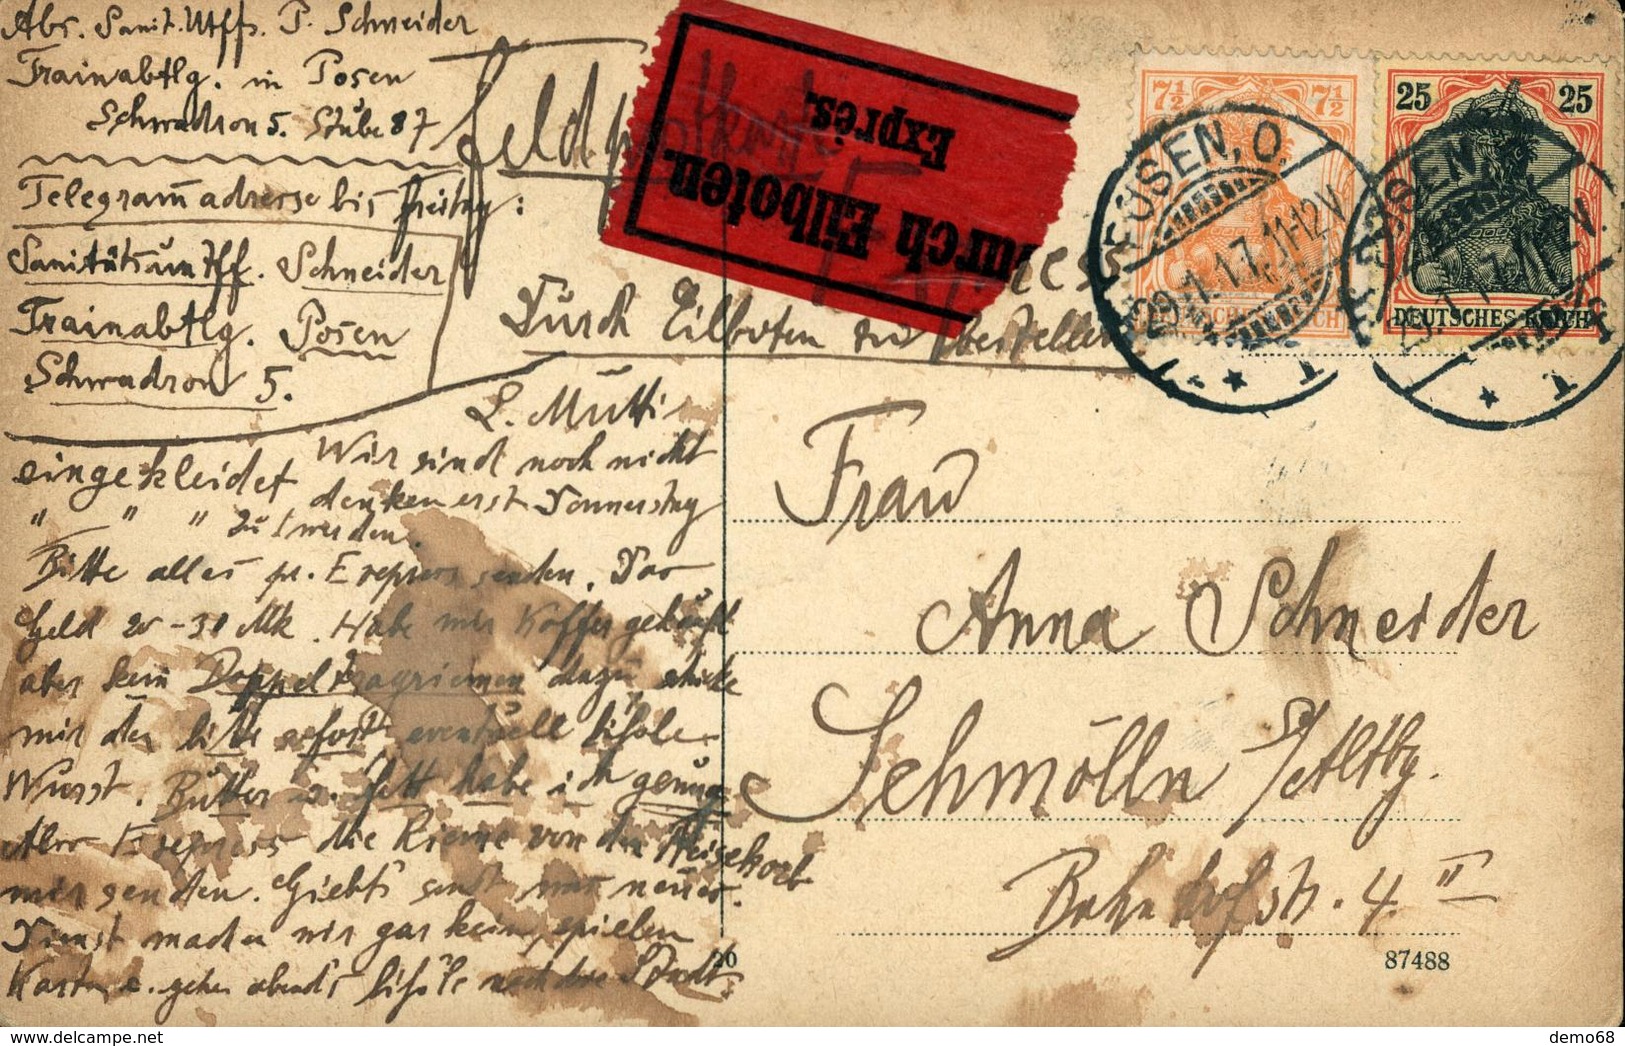 Abs. Sanit. Utffz. P. Schneider
Trainabtlg. in Posen
Schwadron 5. Stube 87
Telegram adresse bis Freitag:
Sanitätsuntff. Schneider
Trainabtlg. Posen
Schwadron 5.
Feldpostkarte
Durch Eilboten.
Exprès.
Durch Eilboten zu bestellen
POSEN, O.
29.1.17. 11-12 V
* 1
7½ 7½
25 25
DEUTSCHES REICH
L. Mutti
Wir sind noch nicht
eingekleidet denken erst Donnerstag
" " " zu werden.
Bitte alles pr. Express senden.
Geld 20-30 Mk. Habe mir Koffer gekauft
aber kein Doppeltragriemen dazu schicke
mir den bitte sofort eventuell bißle
Wurst. Butter u. Fett habe ich genug
Also Express die Rieme von den Reisekorb
mir senden. Giebts sonst was neues.
Dienst machen wir gar kein, spielen
Karten u. gehen abends bißle nach die Stadt.
Frau
Anna Schneider
Schmölln S/Altbg.
Bahnhofstr. 4. II
26
87488
demo68